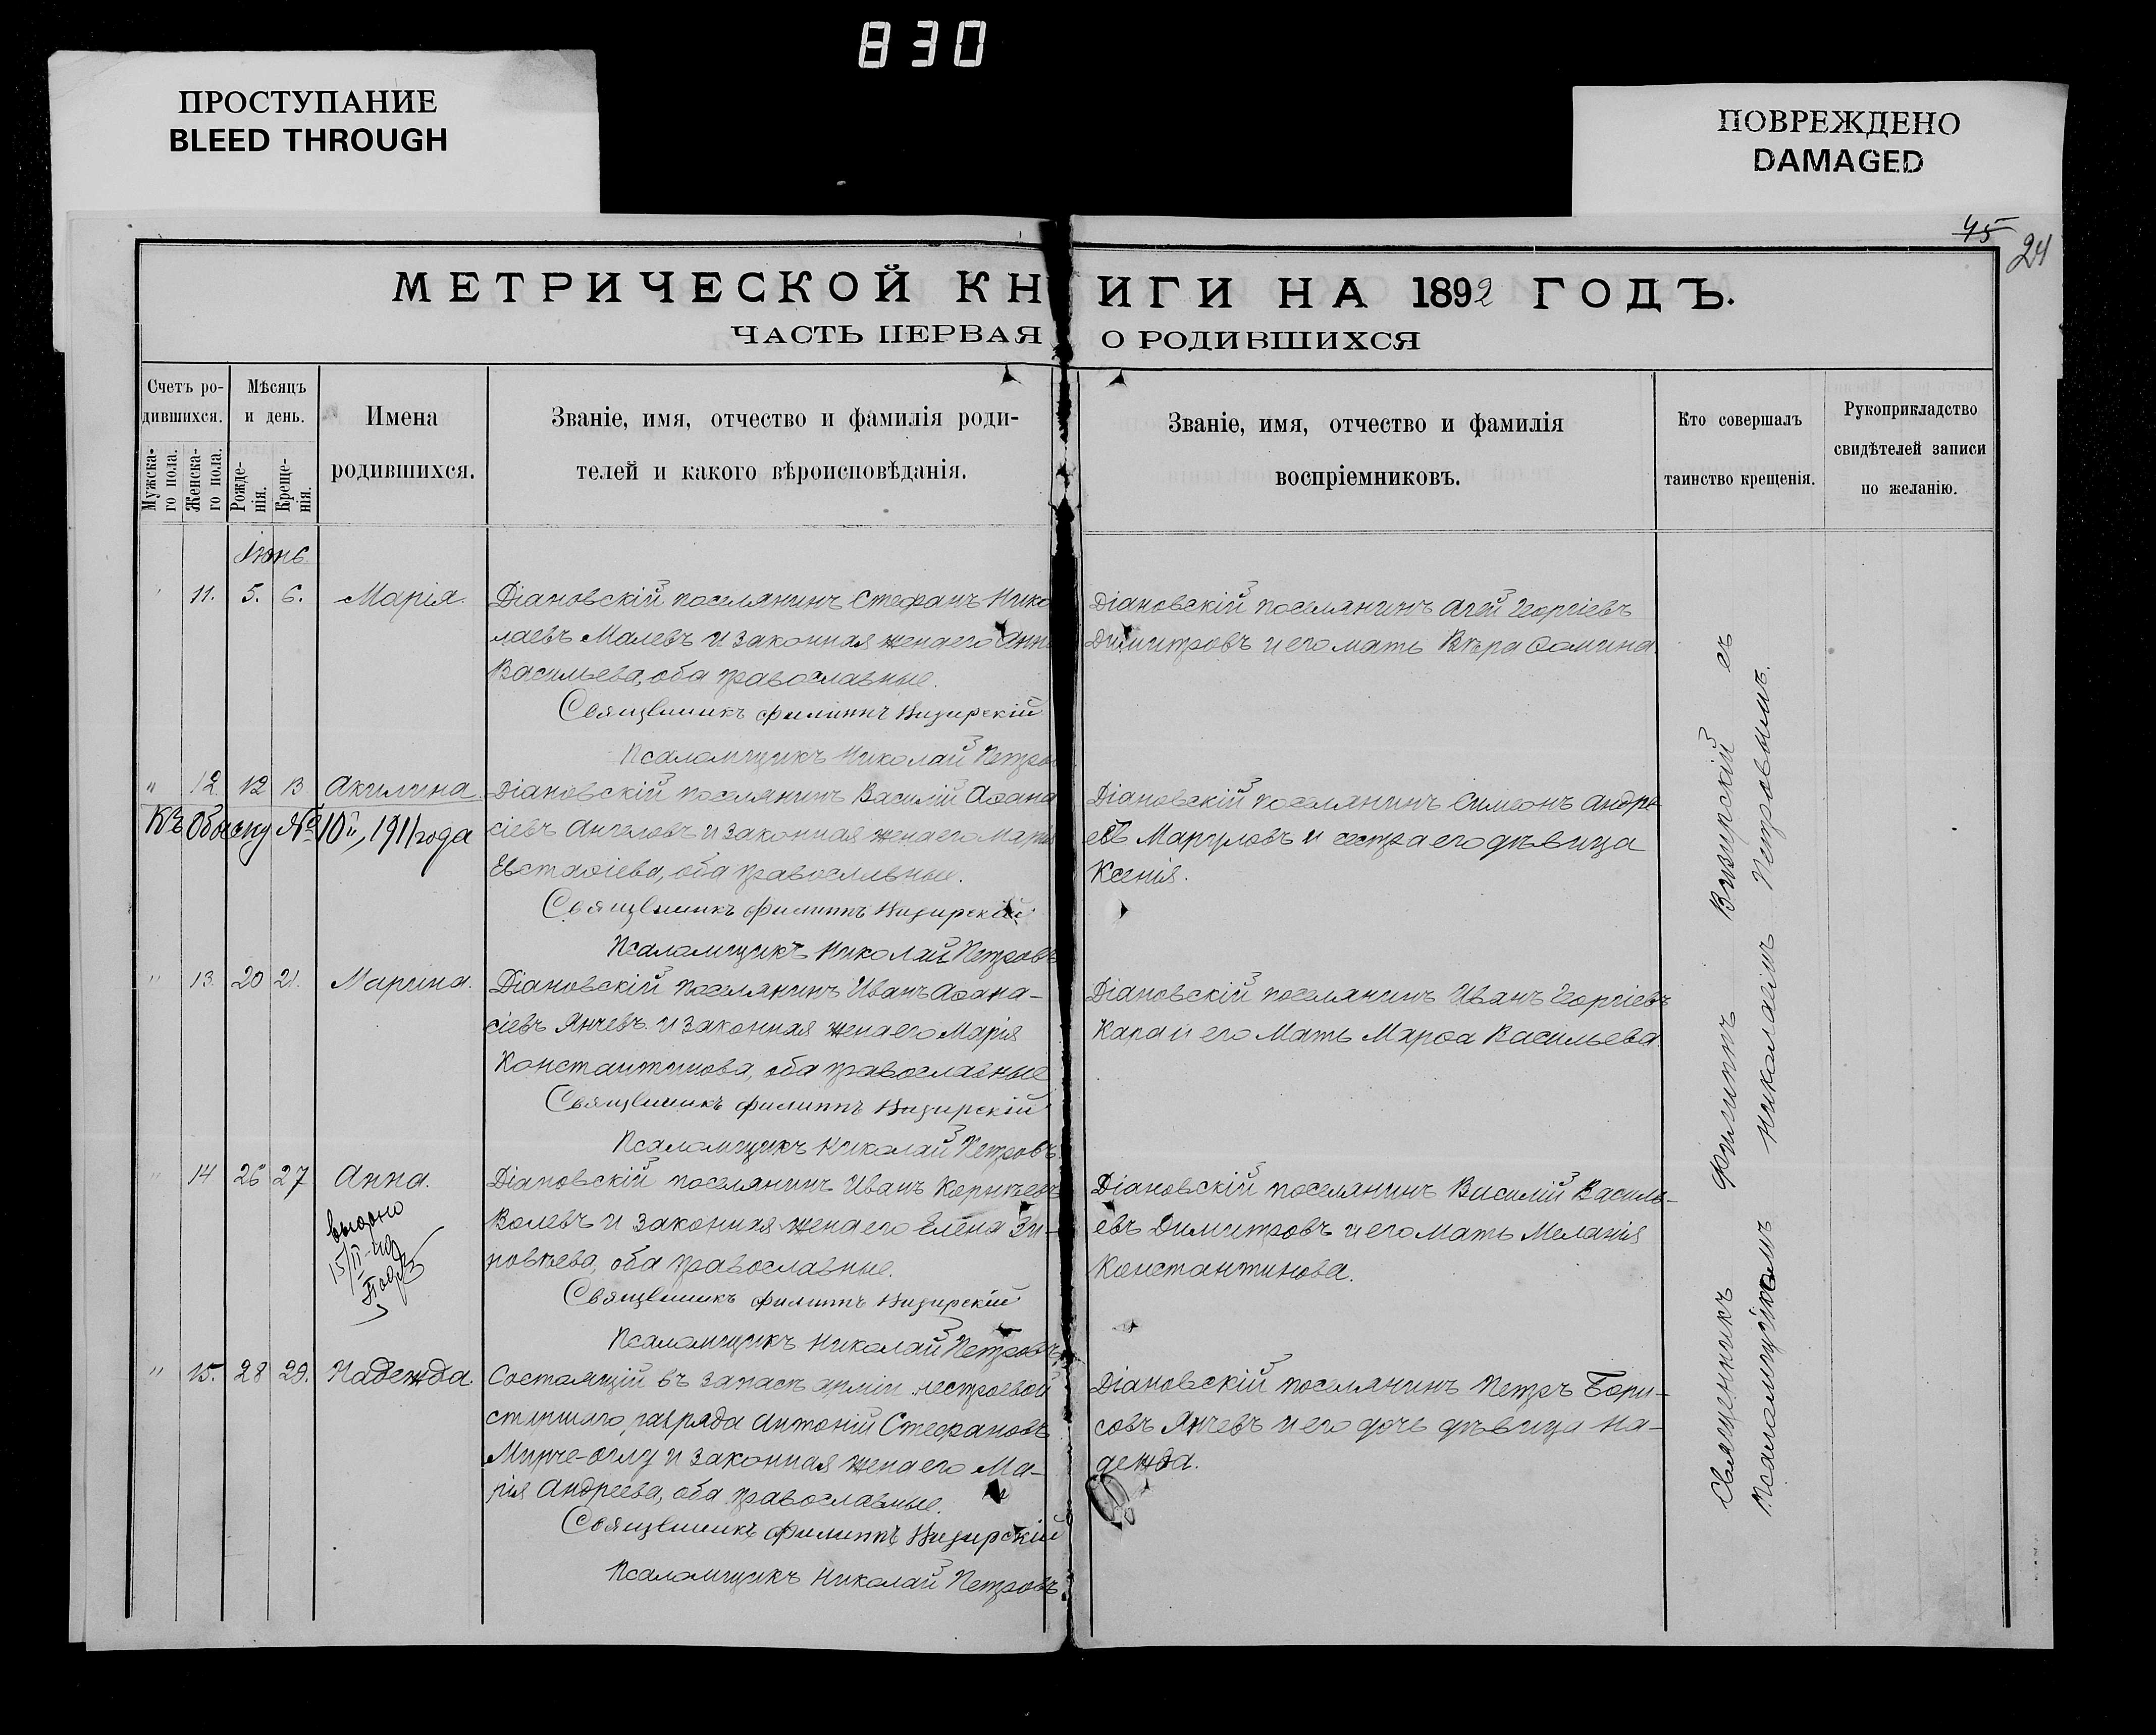 830
ПРОСТУПАНИЕ
BLEED THROUGH
ПОВРЕЖДЕНО
DAMAGED
45
24
МЕТРИЧЕСКОЙ КНИГИ НА 1892 ГОДЪ.
ЧАСТЬ ПЕРВАЯ О РОДИВШИХСЯ
Счетъ ро-
дившихся.
Мужска-
го пола.
Женска-
го пола.
Мѣсяцъ
и день.
Рожде-
нія.
Креще-
нія.
Имена
родившихся.
Званіе, имя, отчество и фамилія роди-
телей и какого вѣроисповѣданія.
Званіе, имя, отчество и фамилія
воспріемниковъ.
Кто совершалъ
таинство крещенія.
Рукоприкладство
свидѣтелей записи
по желанію.
Іюнь
11. 5. 6. Марія.
Діановскій поселянинъ Стефанъ Нико
лаевъ Малевъ и законная жена его Анна
Васильева, оба православные.
Священникъ Филиппъ Визирскій
Псаломщикъ Николай Петровъ
Діановскій поселянинъ Агей Георгіевъ
Димитровъ и его мать Вѣра Ѳомина.
" 12 12 13 Акилина
Къ Обыску № 10й, 1911 года
Діановскій поселянинъ Василій Аѳана
сіевъ Ангеловъ и законная жена его Марія
Евстаѳіева, оба православные.
Священникъ Филиппъ Визирскій
Псаломщикъ Николай Петровъ
Діановскій поселянинъ Симеонъ Андре
евъ Маргуловъ и сестра его дѣвица
Ксенія.
" 13. 20 21. Марина.
Діановскій поселянинъ Иванъ Аѳана-
сіевъ Янчевъ и законная жена его Марія
Константинова, оба православные
Священникъ Филиппъ Визирскій
Псаломщикъ Николай Петровъ
Діановскій поселянинъ Иванъ Георгіевъ
Кара и его мать Марѳа Васильева.
" 14 26 27 Анна.
выдано
15/II
Діановскій поселянинъ Иванъ Корнѣевъ
Волевъ и законная жена его Елена Зи-
новьева, оба православные.
Священникъ Филиппъ Визирскій
Псаломщикъ Николай Петровъ
Діановскій поселянинъ Василій Василь-
евъ Димитровъ и его мать Меланія
Константинова.
" 15. 28 29. Надежда.
Состоящій въ запасѣ арміи нестроевой
старшаго разряда Антоній Стефановъ
Мирче-оглу и законная жена его Ма-
рія Андреева, оба православные.
Священникъ Филиппъ Визирскій
Псаломщикъ Николай Петровъ
Діановскій поселянинъ Петръ Бори-
совъ Янчевъ и его дочь дѣвица На-
дежда.
Священникъ Филиппъ Визирскій съ
Псаломщикомъ Николаемъ Петровымъ.